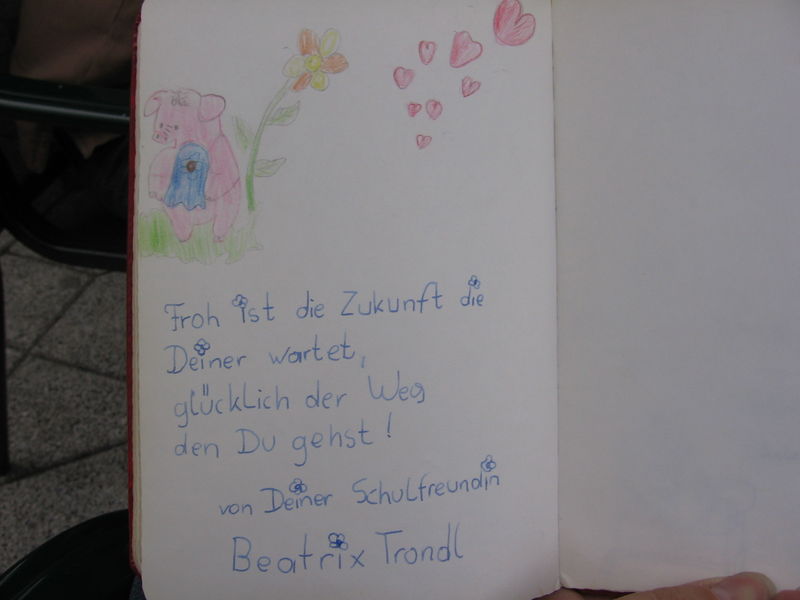 Froh ist die Zukunft die
Deiner wartet,
glücklich der Weg
den Du gehst!
von Deiner Schulfreundin
Beatrix Trondl